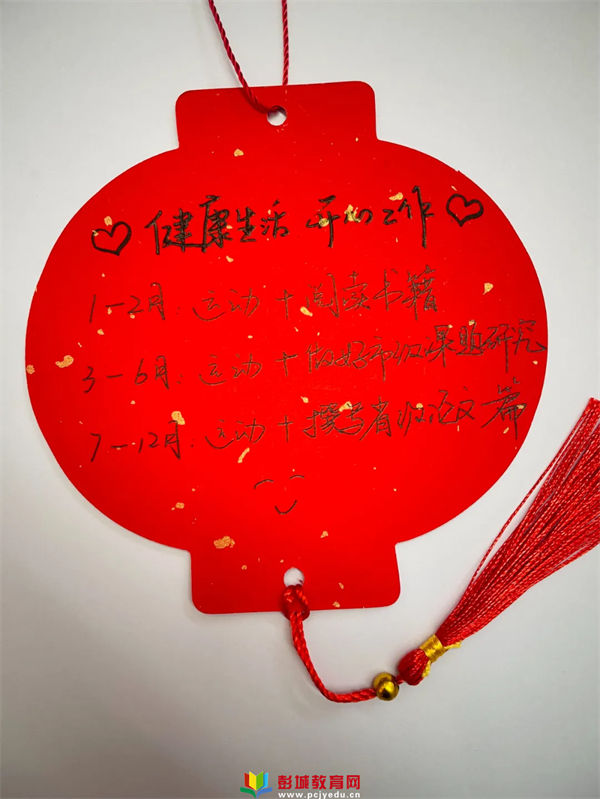 ♡健康生活 开心工作♡
1-2月.运动+阅读书籍
3-6月.运动+做好市级课题研究
7-12月.运动+撰写省级论文篇
彭城教育网
www.pcjyedu.cn